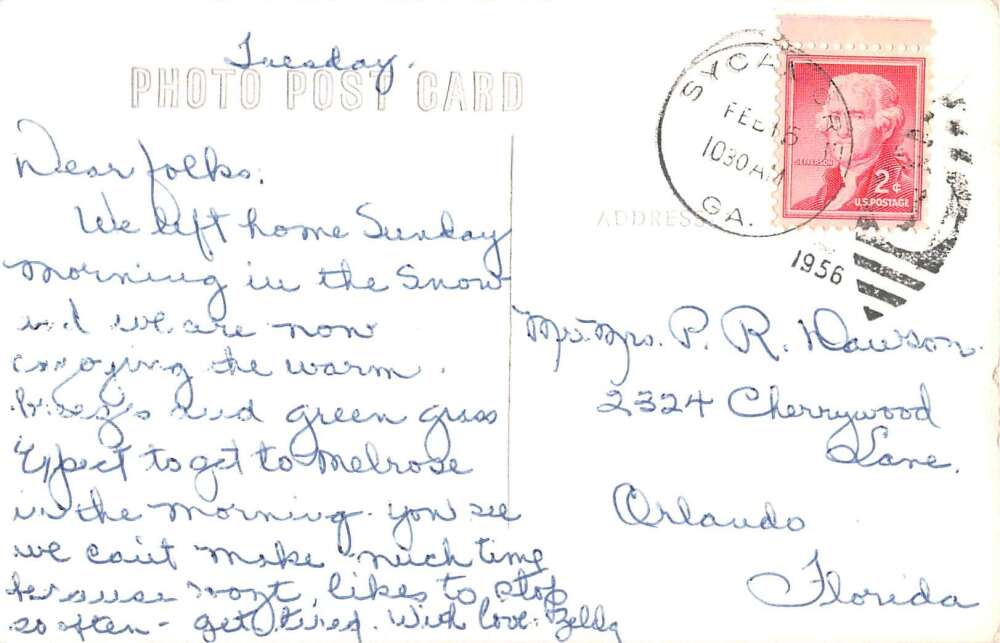 Tuesday.
PHOTO POST CARD
Dear folks.
We left home Sunday
morning in the snow
and we are now
enjoying the warm
and green grass
Expect to get to Melrose
in the morning. you see
we can't make much time
because likes to stop
so often - get tired. With love. Zelda
SYCAMORE
FEB 15
1030 AM
GA.
1956
JEFFERSON
2¢
U.S. POSTAGE
ADDRESS
Mr. Mrs. P. R. Dawson.
2324 Cherrywood
Lane.
Orlando
Florida